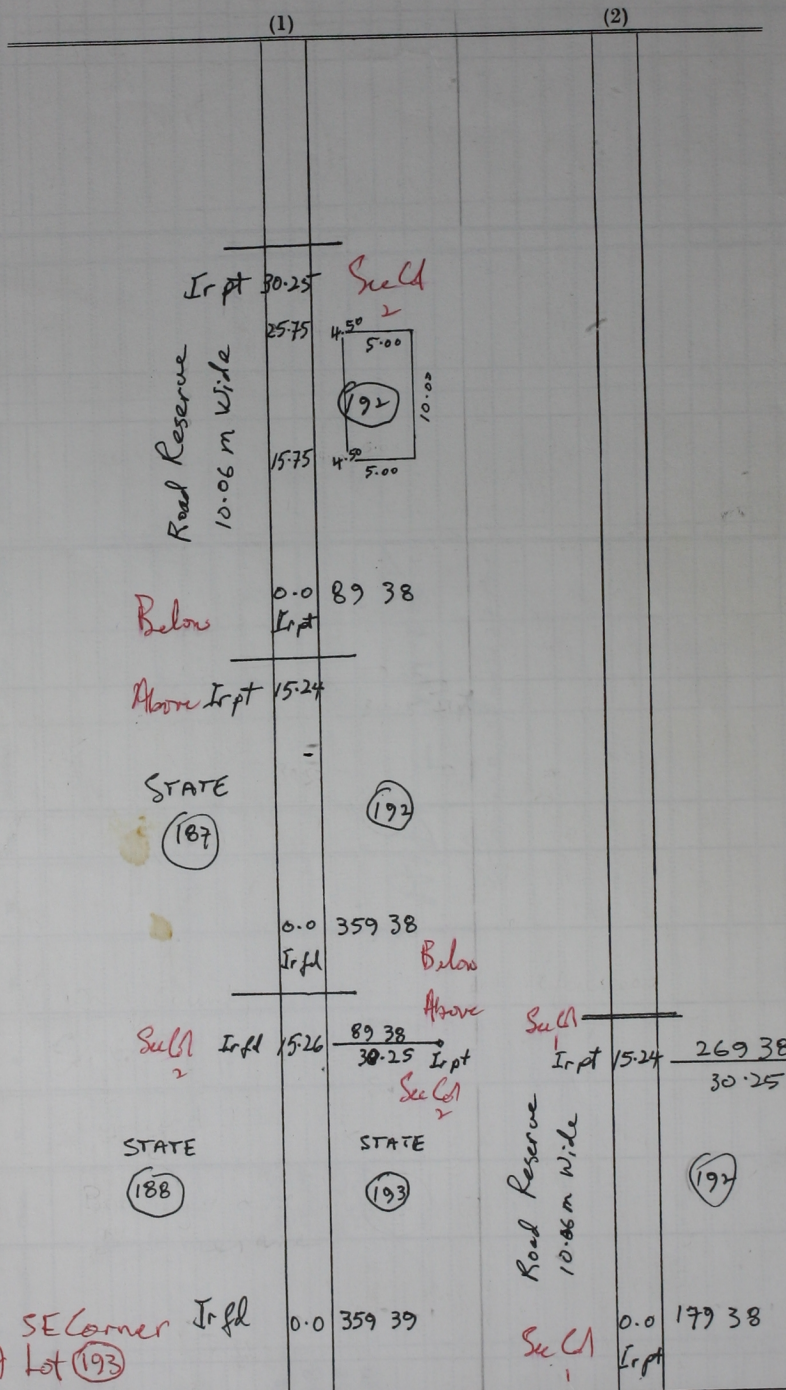 (1) (2)
Ir pt 30.25 See Col
2
25.75 4.50
5.00
Road Reserve
10.06 m Wide
192
10.00
15.75 4.50
5.00
0.0 89 38
Below Ir pt
Above Ir pt 15.24
-
STATE
187
192
0.0 359 38
Ir fd Below
Above
See Col Ir fd 15.26 89 38
2
30.25 Ir pt
See Col
2
STATE STATE
188 193
SE Corner Ir fd 0.0 359 39
Lot 193
See Col
1
Ir pt 15.24 269 38
30.25
Road Reserve
10.06 m Wide
192
0.0 179 38
See Col Ir pt
1